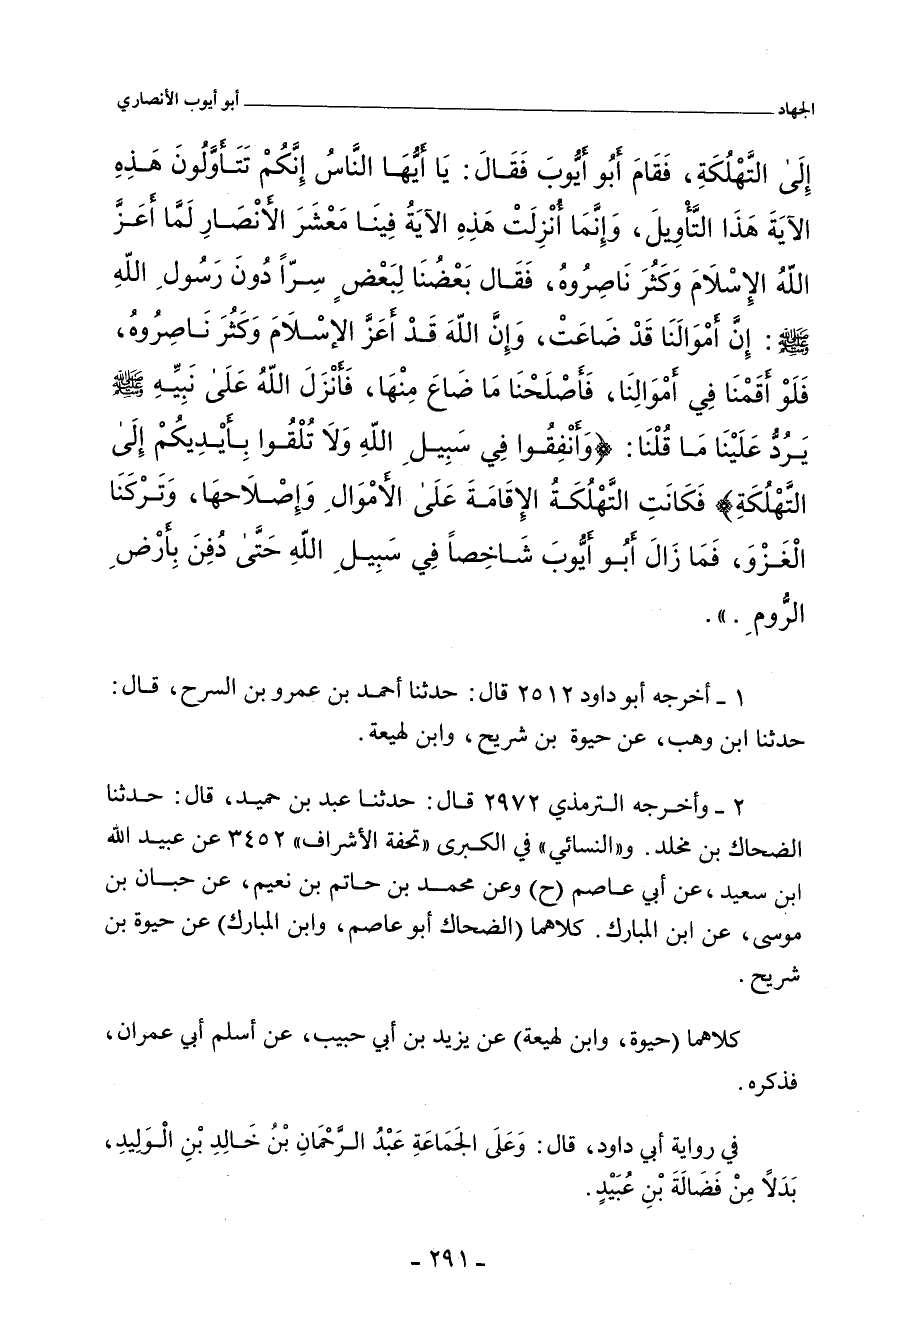 الجهاد ــــــــــــــــــــ أبو أيوب الأنصاري
إِلَىٰ التَّهْلُكَةِ، فَقَامَ أَبُو أَيُّوبَ فَقَالَ: يَا أَيُّهَا النَّاسُ إِنَّكُمْ تَتَأَوَّلُونَ هَذِهِ
الآيَةَ هَذَا التَّأْوِيلَ، وَإِنَّمَا أُنْزِلَتْ هَذِهِ الآيَةُ فِينَا مَعْشَرَ الأَنْصَارِ لَمَّا أَعَزَّ
اللهُ الإِسْلَامَ وَكَثُرَ نَاصِرُوهُ، فَقَال بَعْضُنَا لِبَعْضٍ سِرّاً دُونَ رَسُولِ اللهِ
ﷺ: إِنَّ أَمْوَالَنَا قَدْ ضَاعَتْ، وَإِنَّ اللهَ قَدْ أَعَزَّ الإِسْلَامَ وَكَثُرَ نَاصِرُوهُ،
فَلَوْ أَقَمْنَا فِي أَمْوَالِنَا، فَأَصْلَحْنَا مَا ضَاعَ مِنْهَا، فَأَنْزَلَ اللهُ عَلَىٰ نَبِيِّهِ ﷺ
يَرُدُّ عَلَيْنَا مَا قُلْنَا: ﴿وَأَنْفِقُوا فِي سَبِيلِ اللهِ وَلَا تُلْقُوا بِأَيْدِيكُمْ إِلَىٰ
التَّهْلُكَةِ﴾ فَكَانَتِ التَّهْلُكَةُ الإِقَامَةَ عَلَىٰ الأَمْوَالِ وَإِصْلَاحِهَا، وَتَرْكَنَا
الْغَزْوَ، فَمَا زَالَ أَبُو أَيُّوبَ شَاخِصاً فِي سَبِيلِ اللهِ حَتَّىٰ دُفِنَ بِأَرْضِ
الرُّومِ .».
١ ـ أخرجه أبو داود ٢٥١٢ قال: حدثنا أحمد بن عمرو بن السرح، قال:
حدثنا ابن وهب، عن حيوة بن شريح، وابن لهيعة.
٢ ـ وأخرجه الترمذي ٢٩٧٢ قال: حدثنا عبد بن حميد، قال: حدثنا
الضحاك بن مخلد. و«النسائي» في الكبرى «تحفة الأشراف» ٣٤٥٢ عن عبيد الله
ابن سعيد، عن أبي عاصم (ح) وعن محمد بن حاتم بن نعيم، عن حبان بن
موسى، عن ابن المبارك. كلاهما (الضحاك أبو عاصم، وابن المبارك) عن حيوة بن
شريح.
كلاهما (حيوة، وابن لهيعة) عن يزيد بن أبي حبيب، عن أسلم أبي عمران،
فذكره.
في رواية أبي داود، قال: وَعَلَى الجَمَاعَةِ عَبْدُ الرَّحْمَانِ بْنُ خَالِدِ بْنِ الْوَلِيدِ،
بَدَلاً مِنْ فَضَالَةَ بْنِ عُبَيْدٍ.
ـ ٢٩١ ـ